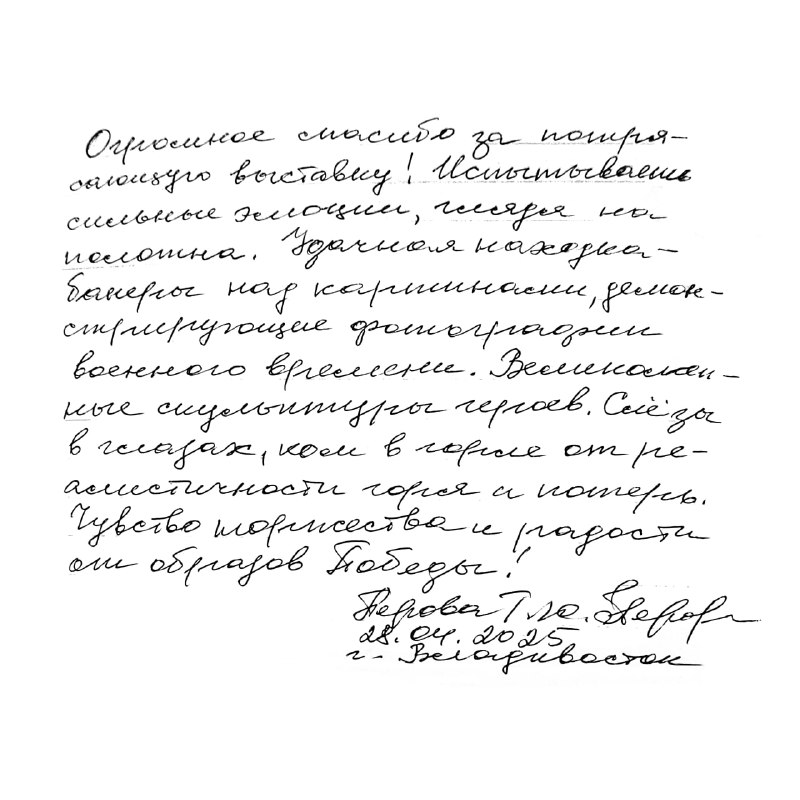 Огромное спасибо за потря-
сающую выставку! Испытываешь
сильные эмоции, глядя на
полотна. Удачная находка-
банеры над картинами, демон-
стрирующие фотографии
военного времени. Великолеп-
ные скульптуры героев. Слёзы
в глазах, ком в горле от ре-
алистичности горя и потерь.
Чувство торжества и радости
от образов Победы!
Перова Т.Ю.
28.04.2025
г. Владивосток